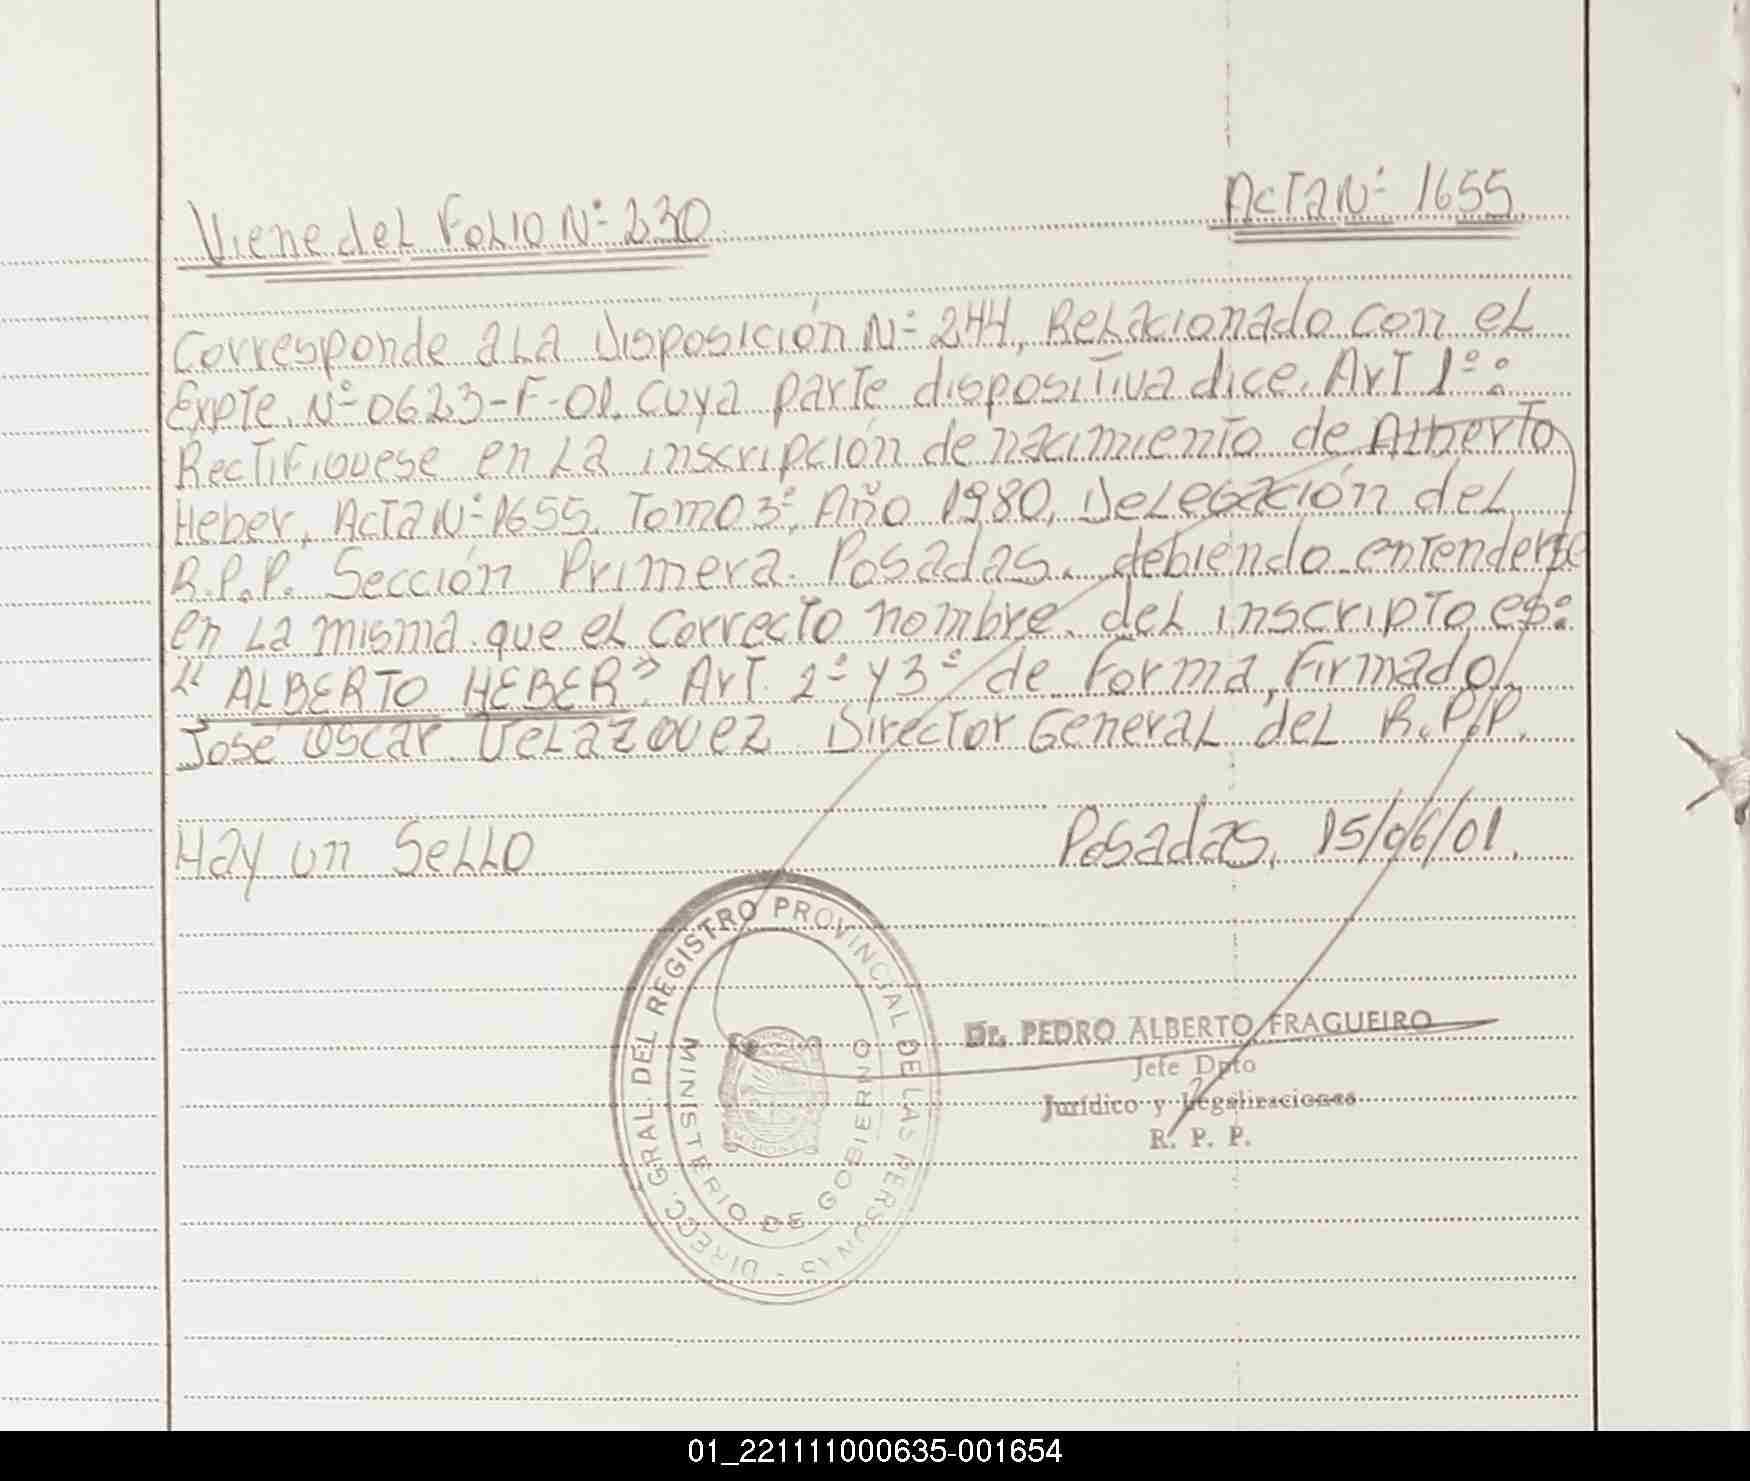 Viene del Folio Nº 230
Acta Nº 1655
Corresponde a la Disposición Nº 244, Relacionado con el
Expte. Nº 0623-F-01. cuya parte dispositiva dice. Art 1º:
Rectifiquese en la inscripción de nacimiento de Alberto
Heber, Acta Nº 1655. Tomo 3º, Año 1980, Delegación del
R.P.P. Sección Primera. Posadas. debiendo entenderse
en la misma que el correcto nombre del inscripto es:
"ALBERTO HEBER" Art. 2º y 3º de Forma, Firmado
Jose Oscar Velazquez Director General del R.P.P.
Hay un Sello
Posadas, 15/06/01.
DIRECC. GRAL. DEL REGISTRO PROVINCIAL DE LAS PERSONAS -
MINISTERIO DE GOBIERNO
MISIONES
Dr. PEDRO ALBERTO FRAGUEIRO
Jefe Dpto
Jurídico y Legalizaciones
R. P. P.
01_221111000635-001654